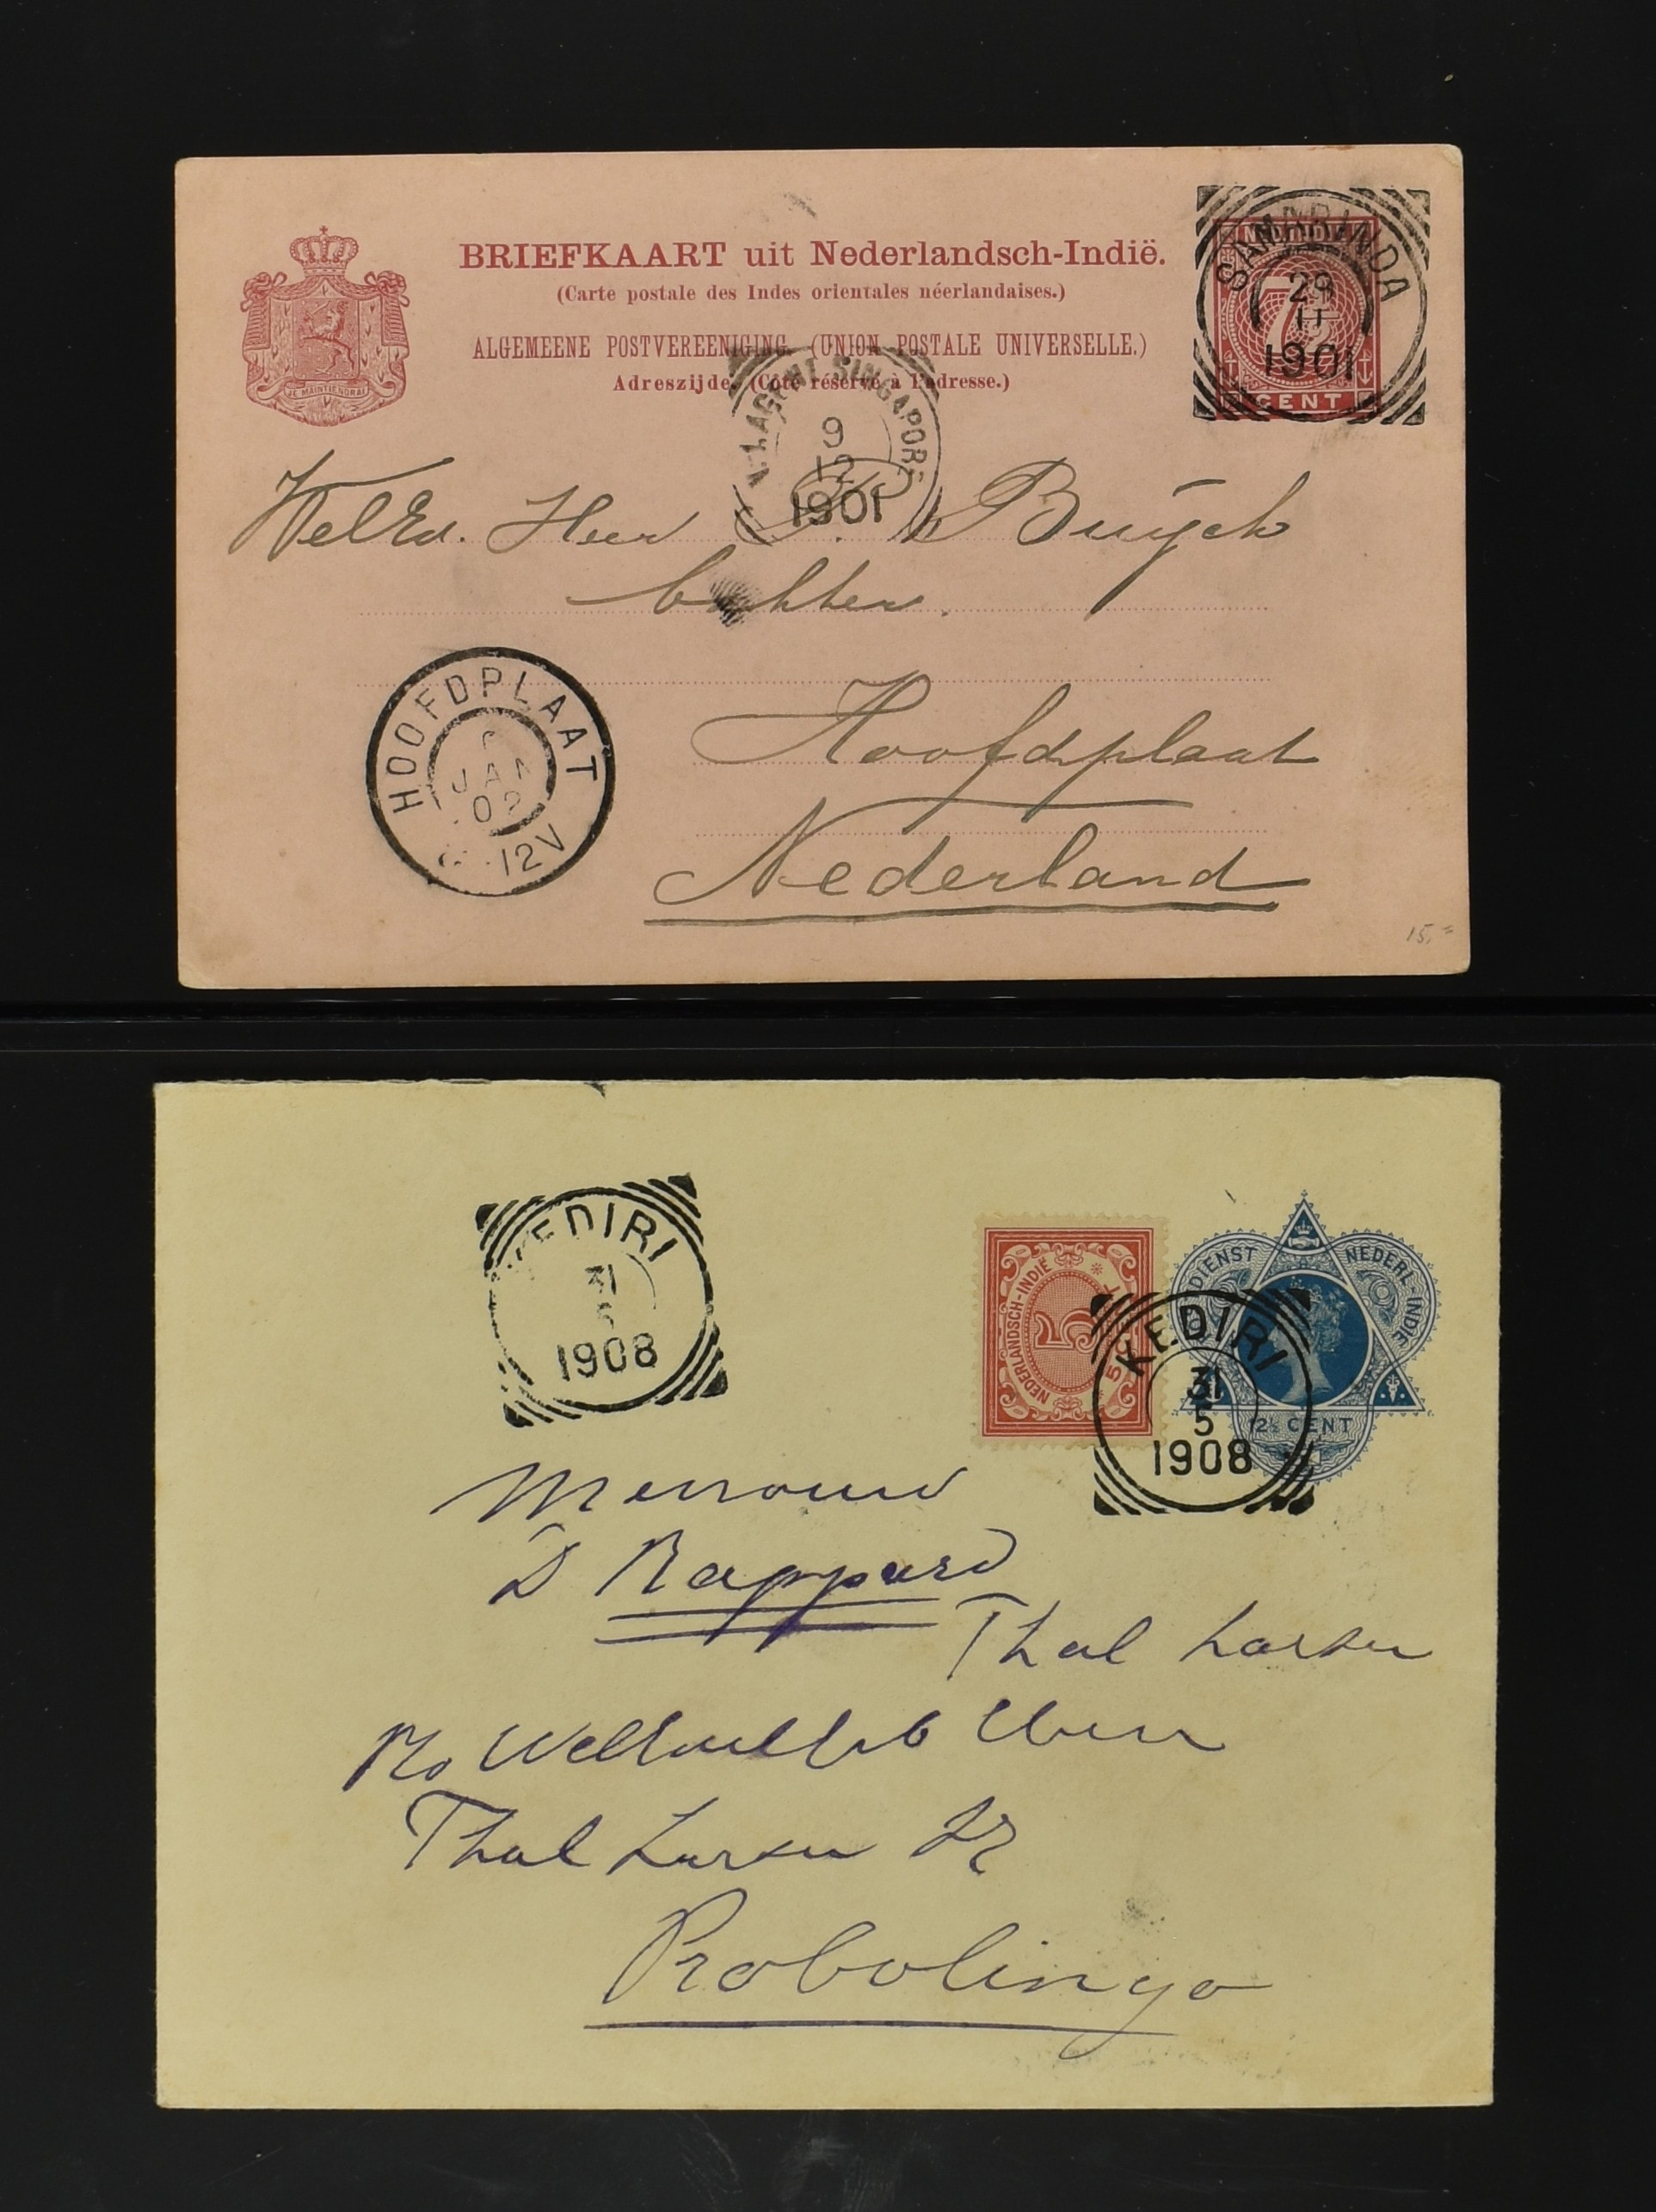 BRIEFKAART uit Nederlandsch-Indië.
(Carte postale des Indes orientales néerlandaises.)
ALGEMEENE POSTVEREENIGING. (UNION POSTALE UNIVERSELLE.)
Adreszijde. (Côté réservé à l'adresse.)
JE MAINTIENDRAI
SAMARINDA
29
11
1901
7½
CENT
N.I. AGENT SINGAPORE
9
12
1901
WelEd. Heer P. Buijck
Hoofdplaat
Nederland
HOOFDPLAAT
JAN
02
12V
15,=
KEDIRI
31
5
1908
NEDERLANDSCH-INDIË
5
DIENST NEDERL-INDIE
12½ CENT
KEDIRI
31
5
1908
Mevrouw
D Rappard
Thal Larsen
Thal Larsen
Probolingo